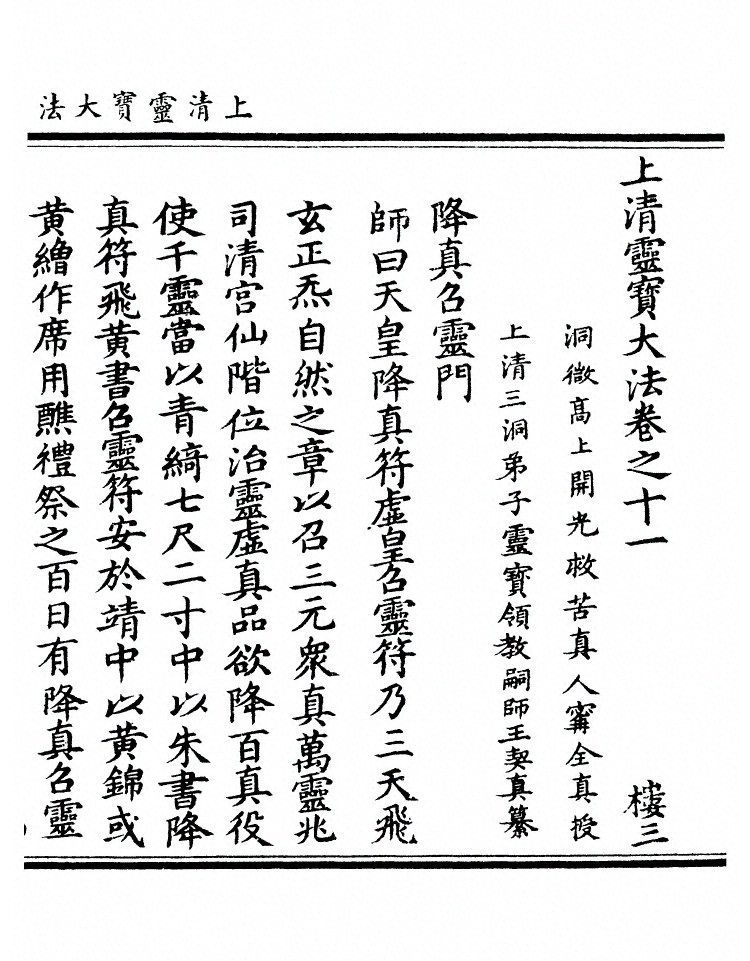 上清靈寶大法
上清靈寶大法卷之十一 樓三
洞微高上開光救苦真人寗全真授
上清三洞弟子靈寶領教嗣師王契真纂
降真召靈門
師曰天皇降真符虛皇召靈符乃三天飛
玄正炁自然之章以召三元衆真萬靈兆
司清宮仙階位治靈虛真品欲降百真役
使千靈當以青綺七尺二寸中以朱書降
真符飛黄書召靈符安於靖中以黄錦或
黄繒作席用醮禮祭之百日有降真召靈